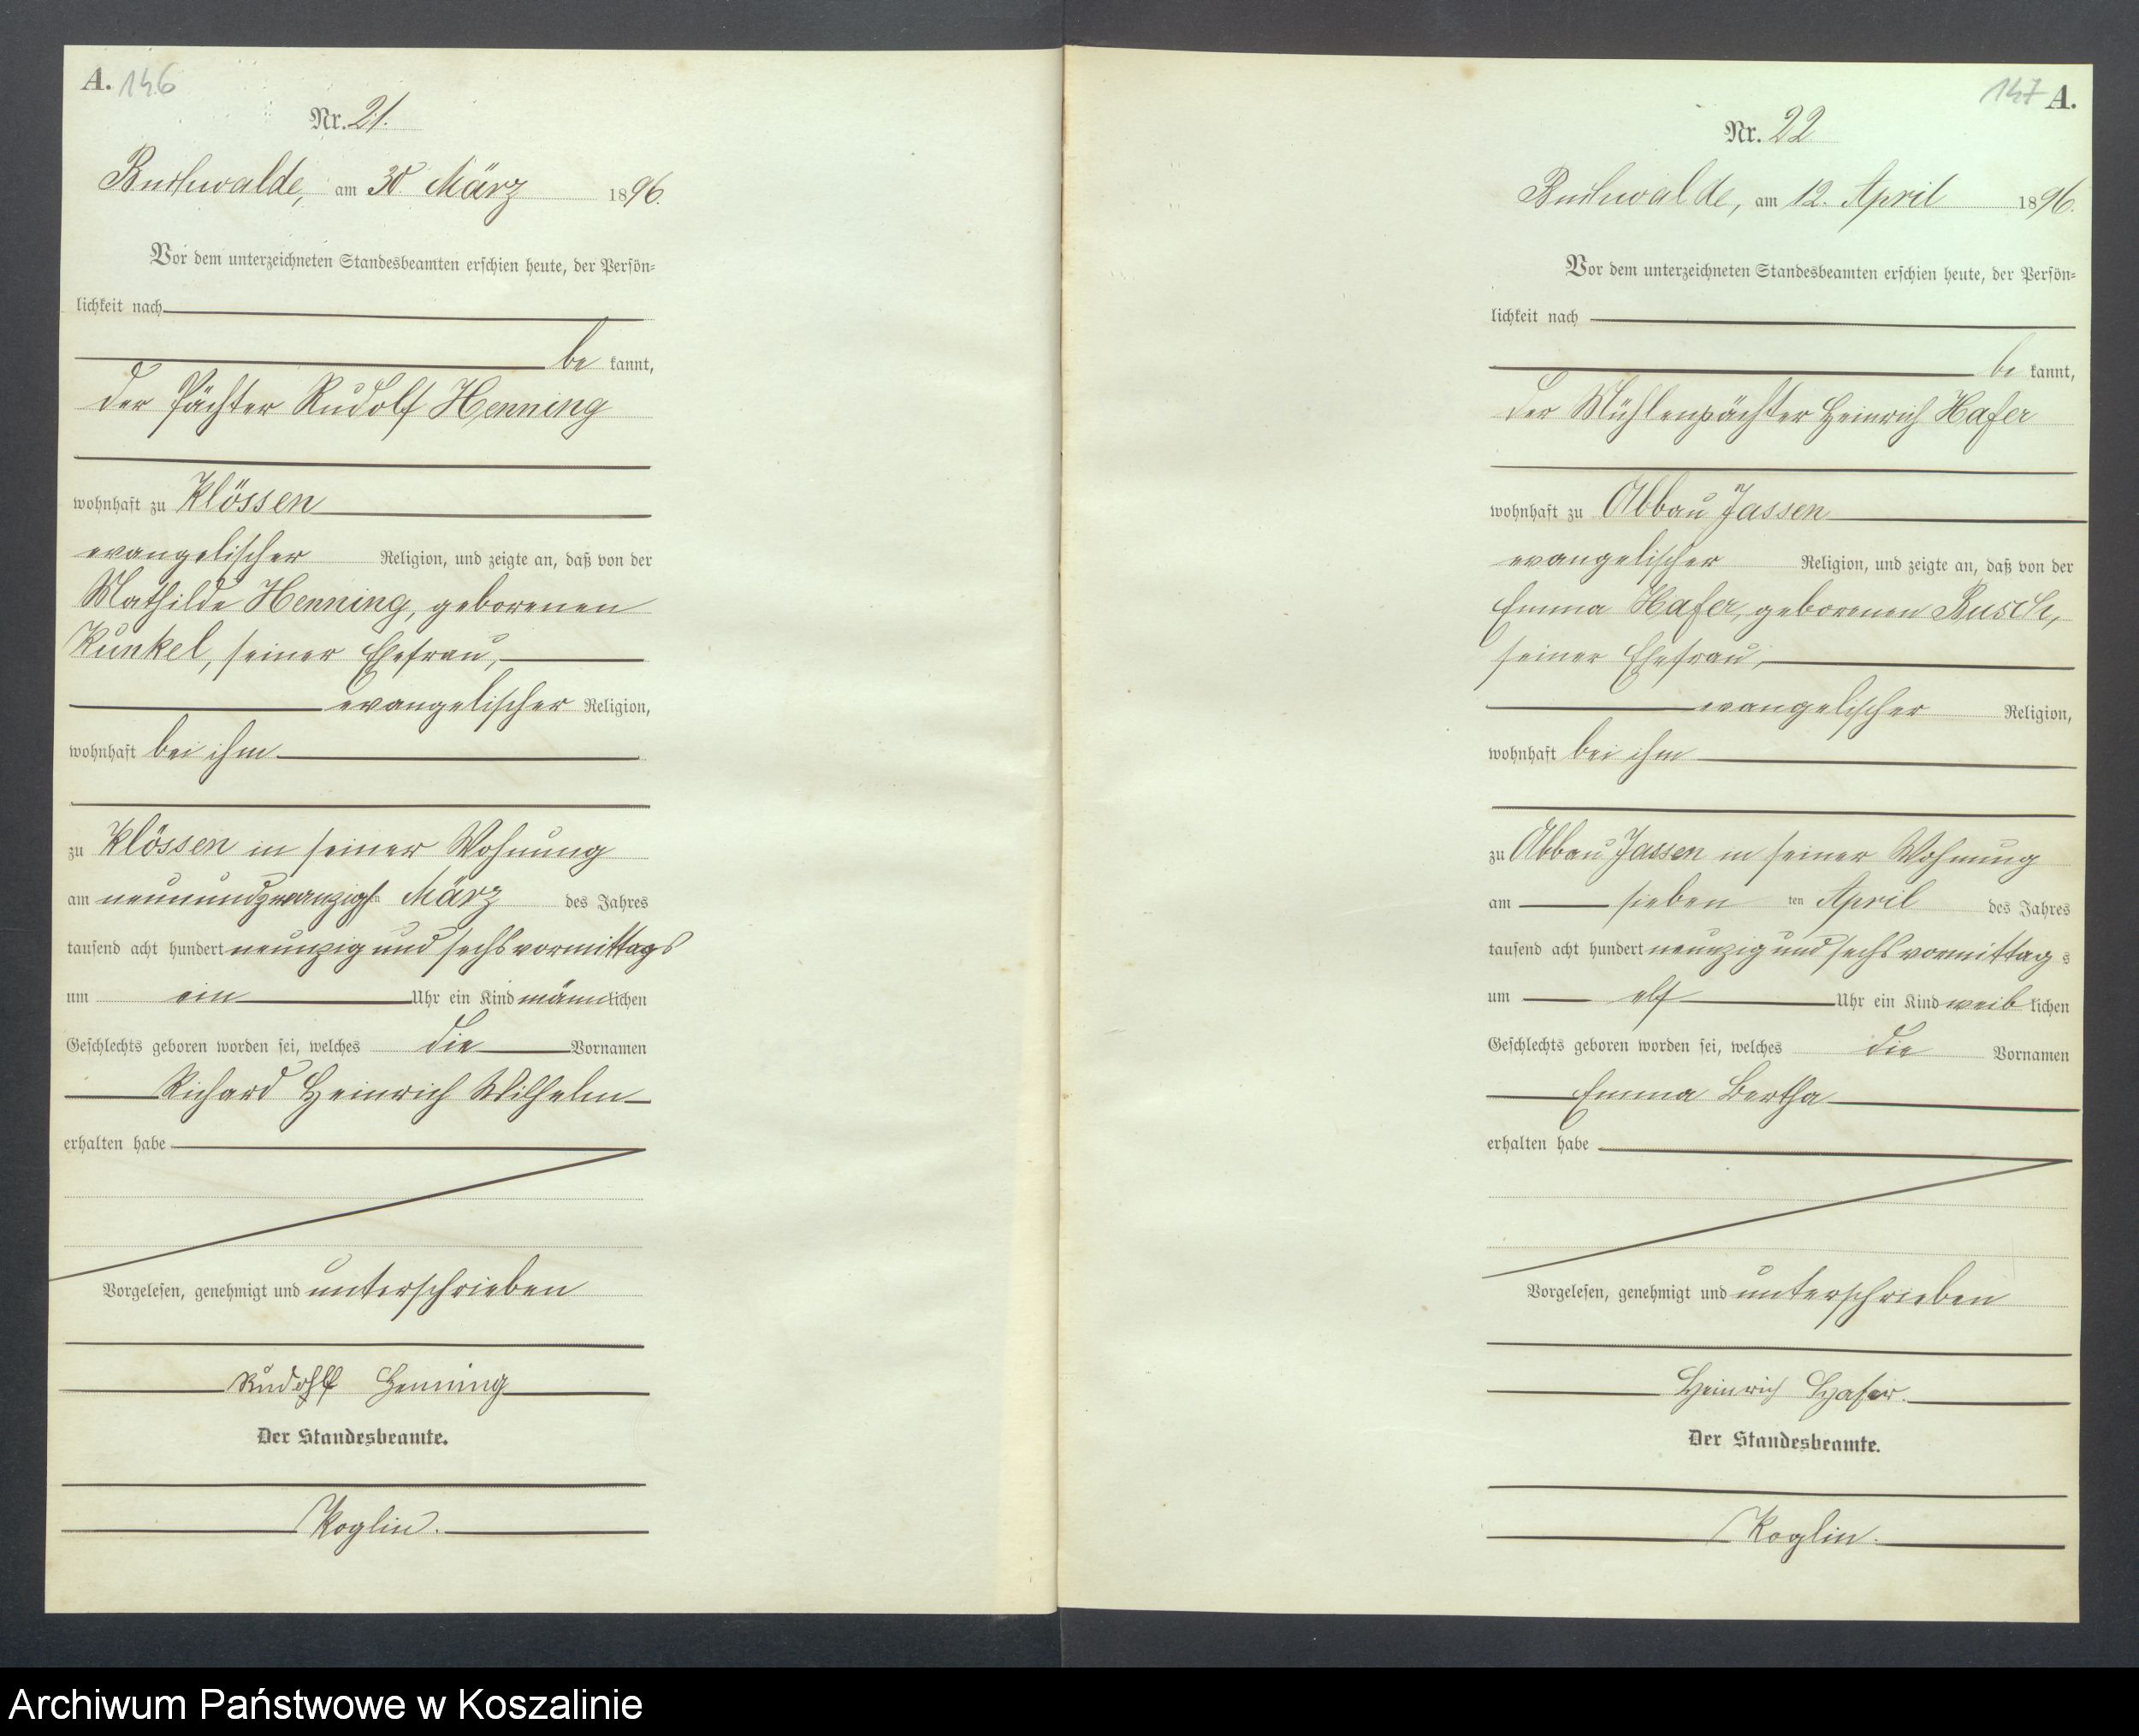 A. 146
Nr. 21.
Buchwalde, am 30 März 1896.
Vor dem unterzeichneten Standesbeamten erschien heute, der Persön-
lichkeit nach
be kannt,
der Pächter Rudolf Henning
wohnhaft zu Klössen
evangelischer Religion, und zeigte an, daß von der
Mathilde Henning, geborenen
Kunkel, seiner Ehefrau,
evangelischer Religion,
wohnhaft bei ihm
zu Klössen in seiner Wohnung
am neunundzwanzigsten März des Jahres
tausend acht hundert neunzig und sechs vormittags
um ein Uhr ein Kind männlichen
Geschlechts geboren worden sei, welches die Vornamen
Richard Heinrich Wilhelm
erhalten habe
Vorgelesen, genehmigt und unterschrieben
Rudolf Henning
Der Standesbeamte.
Koglin.
147 A.
Nr. 22
Buchwalde, am 12. April 1896.
Vor dem unterzeichneten Standesbeamten erschien heute, der Persön-
lichkeit nach
be kannt,
der Mühlenpächter Heinrich Hafer
wohnhaft zu Abbau Jassen
evangelischer Religion, und zeigte an, daß von der
Emma Hafer, geborenen Busch,
seiner Ehefrau,
evangelischer Religion,
wohnhaft bei ihm
zu Abbau Jassen in seiner Wohnung
am sieben ten April des Jahres
tausend acht hundert neunzig und sechs vormittag s
um elf Uhr ein Kind weib lichen
Geschlechts geboren worden sei, welches die Vornamen
Emma Bertha
erhalten habe
Vorgelesen, genehmigt und unterschrieben
Heinrich Hafer.
Der Standesbeamte.
Koglin.
Archiwum Państwowe w Koszalinie